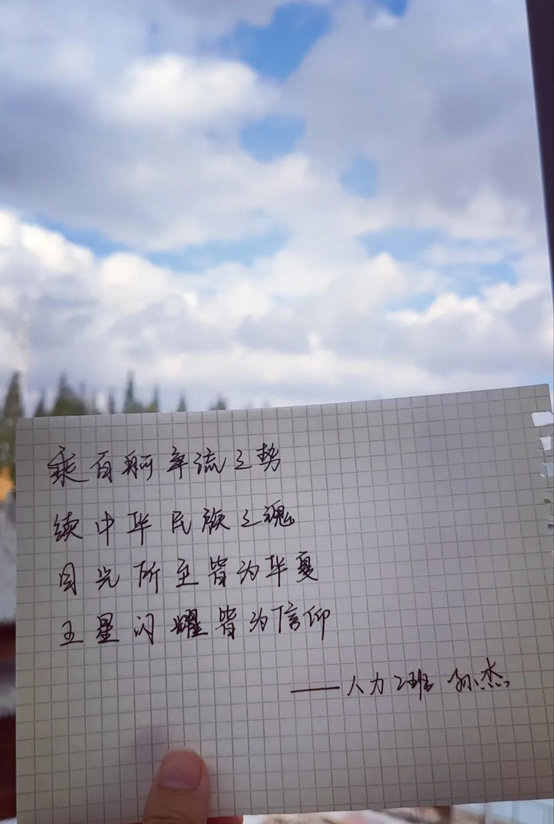 乘百舸争流之势
续中华民族之魂
目光所至皆为华夏
五星闪耀皆为信仰
——人力2班 孙杰